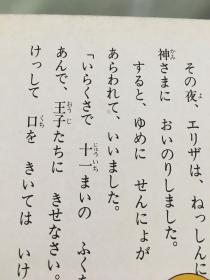 その夜、エリザは、ねっしんに
神さまに おいのりしました。
すると、ゆめに せんにょが
あらわれて、いいました。
「いらくさで 十一まいの ふく
あんで、王子たちに きせなさい。
けっして 口を きいては いけ